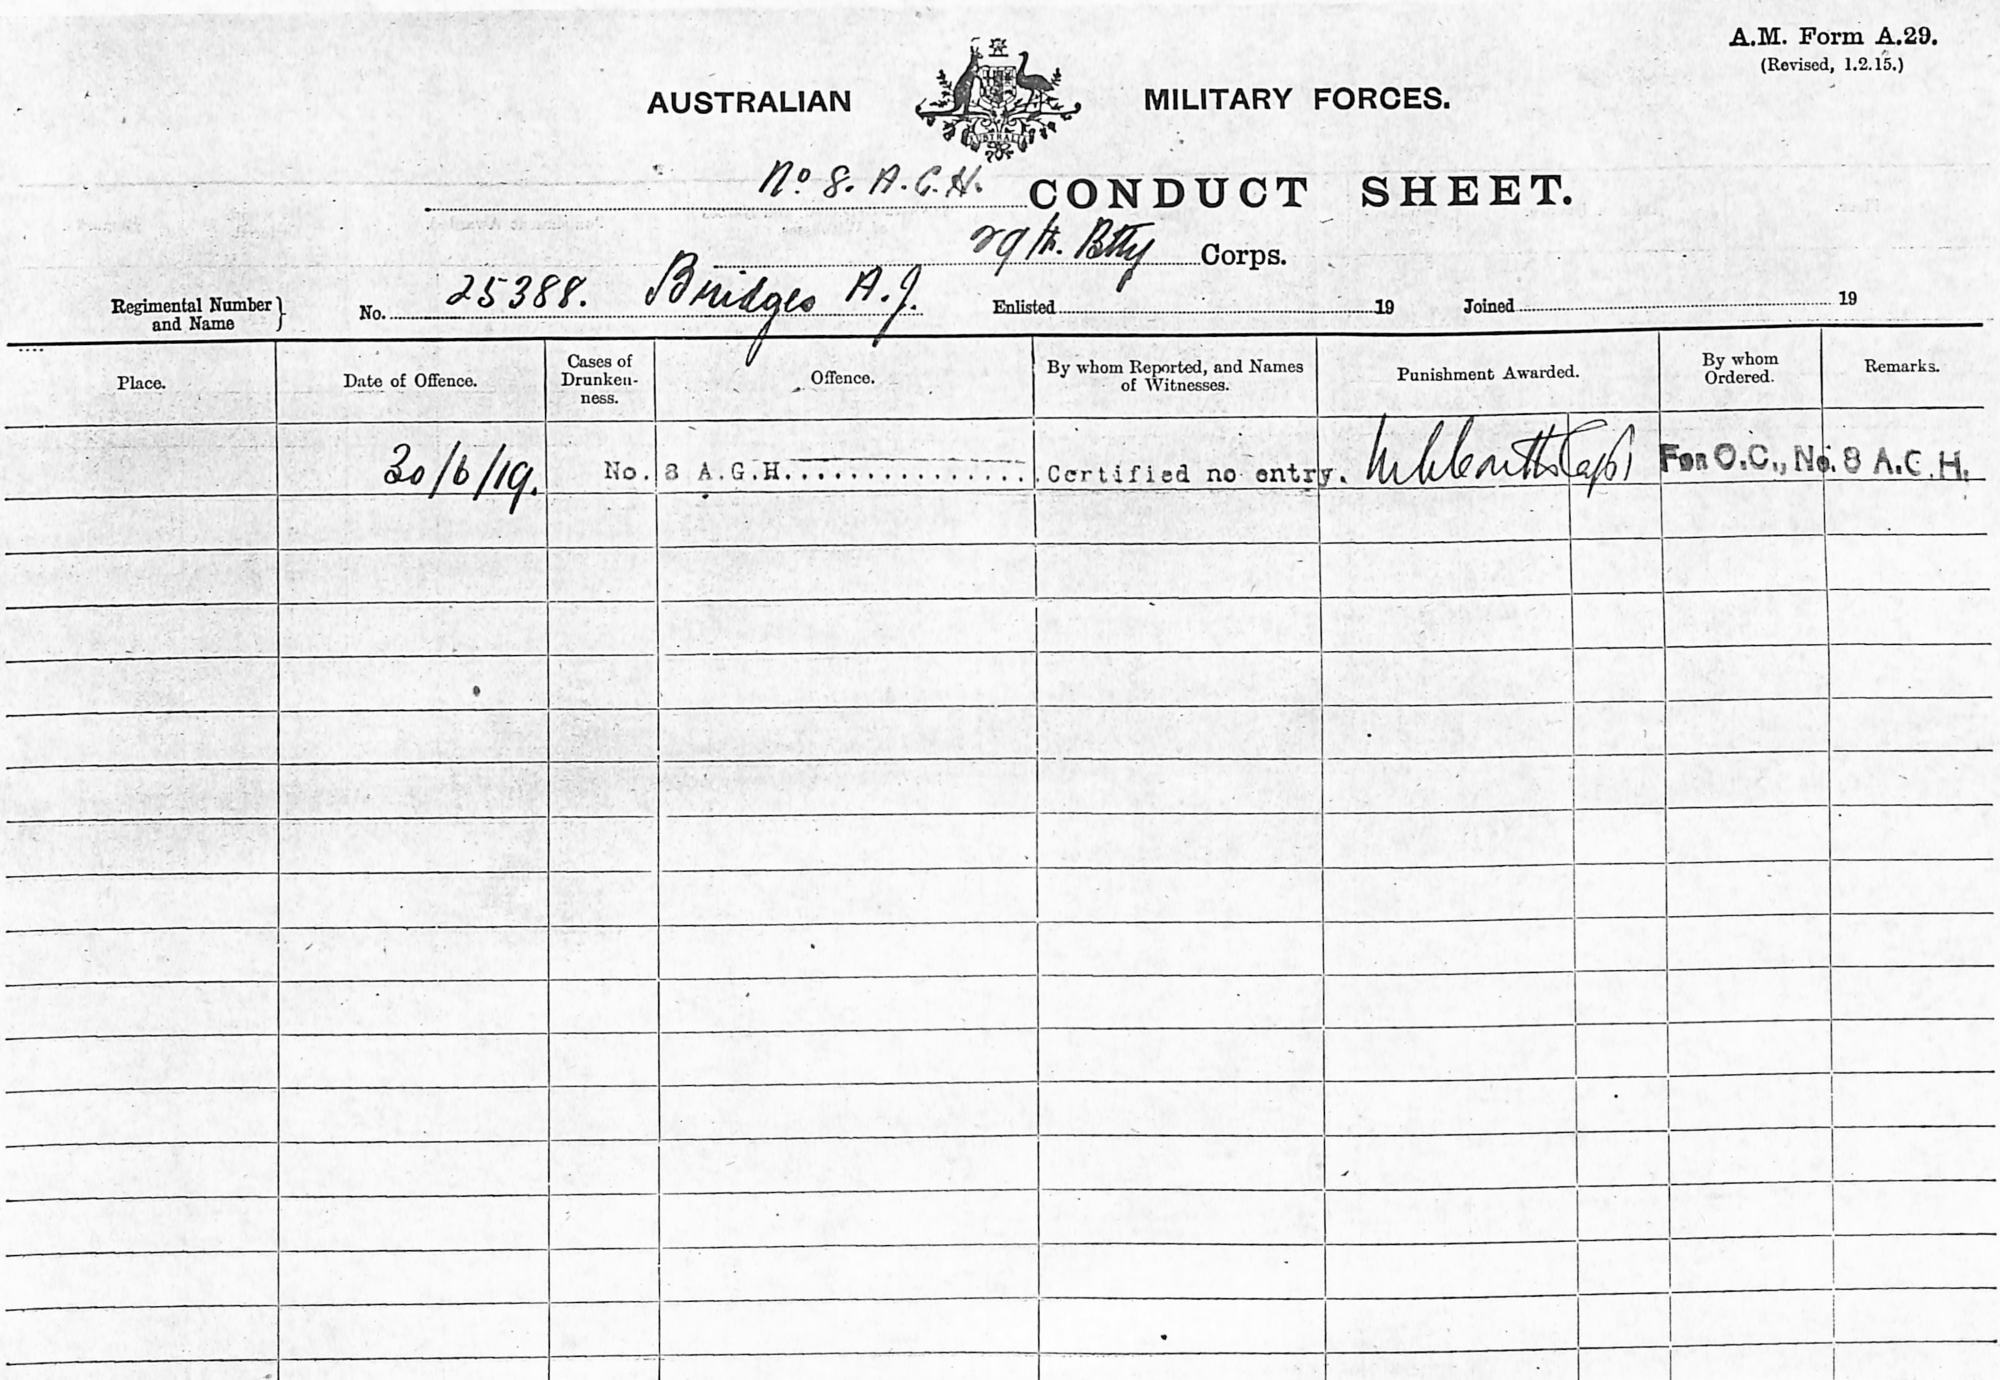 A.M. Form A.29.
(Revised, 1.2.15.)
AUSTRALIAN MILITARY FORCES.
No 8. A.G.H. CONDUCT SHEET.
29th. Btty Corps.
Regimental Number and Name } No. 25388. Bridges A.J. Enlisted 19 Joined 19
Place. Date of Offence. Cases of Drunken-ness. Offence. By whom Reported, and Names of Witnesses. Punishment Awarded. By whom Ordered. Remarks.
30/6/19. No. 8 A.G.H................Certified no entry. Capt For O.C., No. 8 A.G.H.